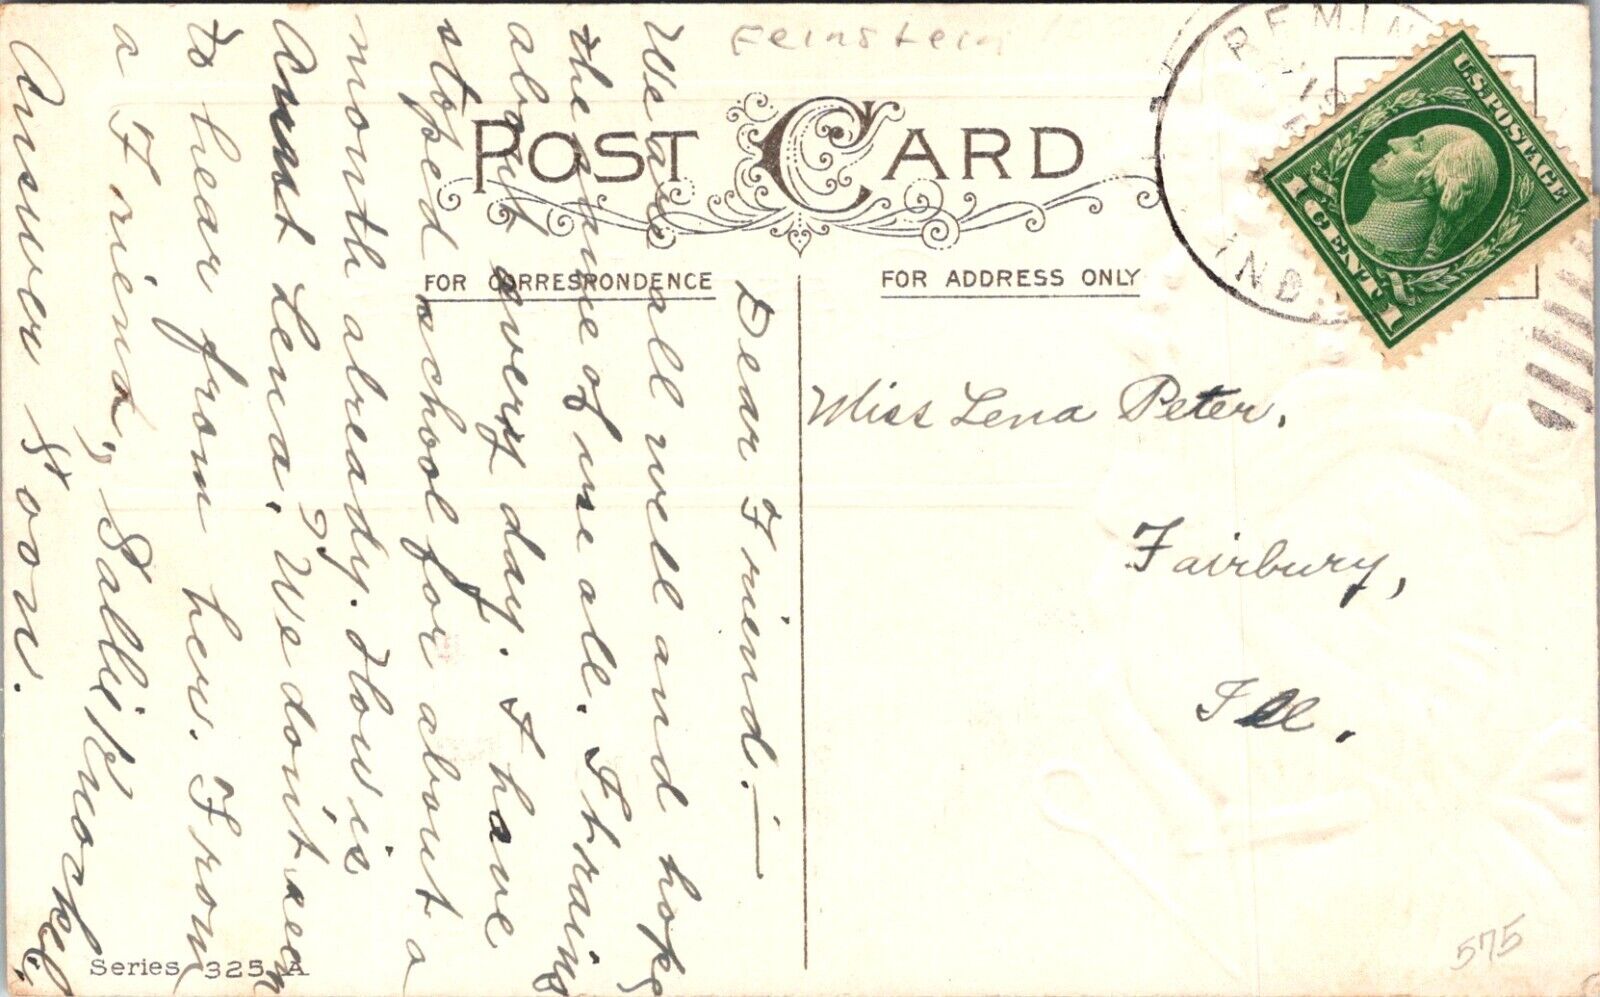 Feinstein
POST CARD
FOR CORRESPONDENCE
FOR ADDRESS ONLY
REMIN
IND.
U.S. POSTAGE
1 CENT 1
Miss Lena Peter,
Fairbury,
Ill.
575
Dear Friend:—
We are all well and hope
the same of use all. It raines
about avery day. I have
stoped school for about a
month already. How is
Aunt Lena,? We don't seem
to hear from her. From
a Friend, Sallie
Answer Soon.
Series 325 A